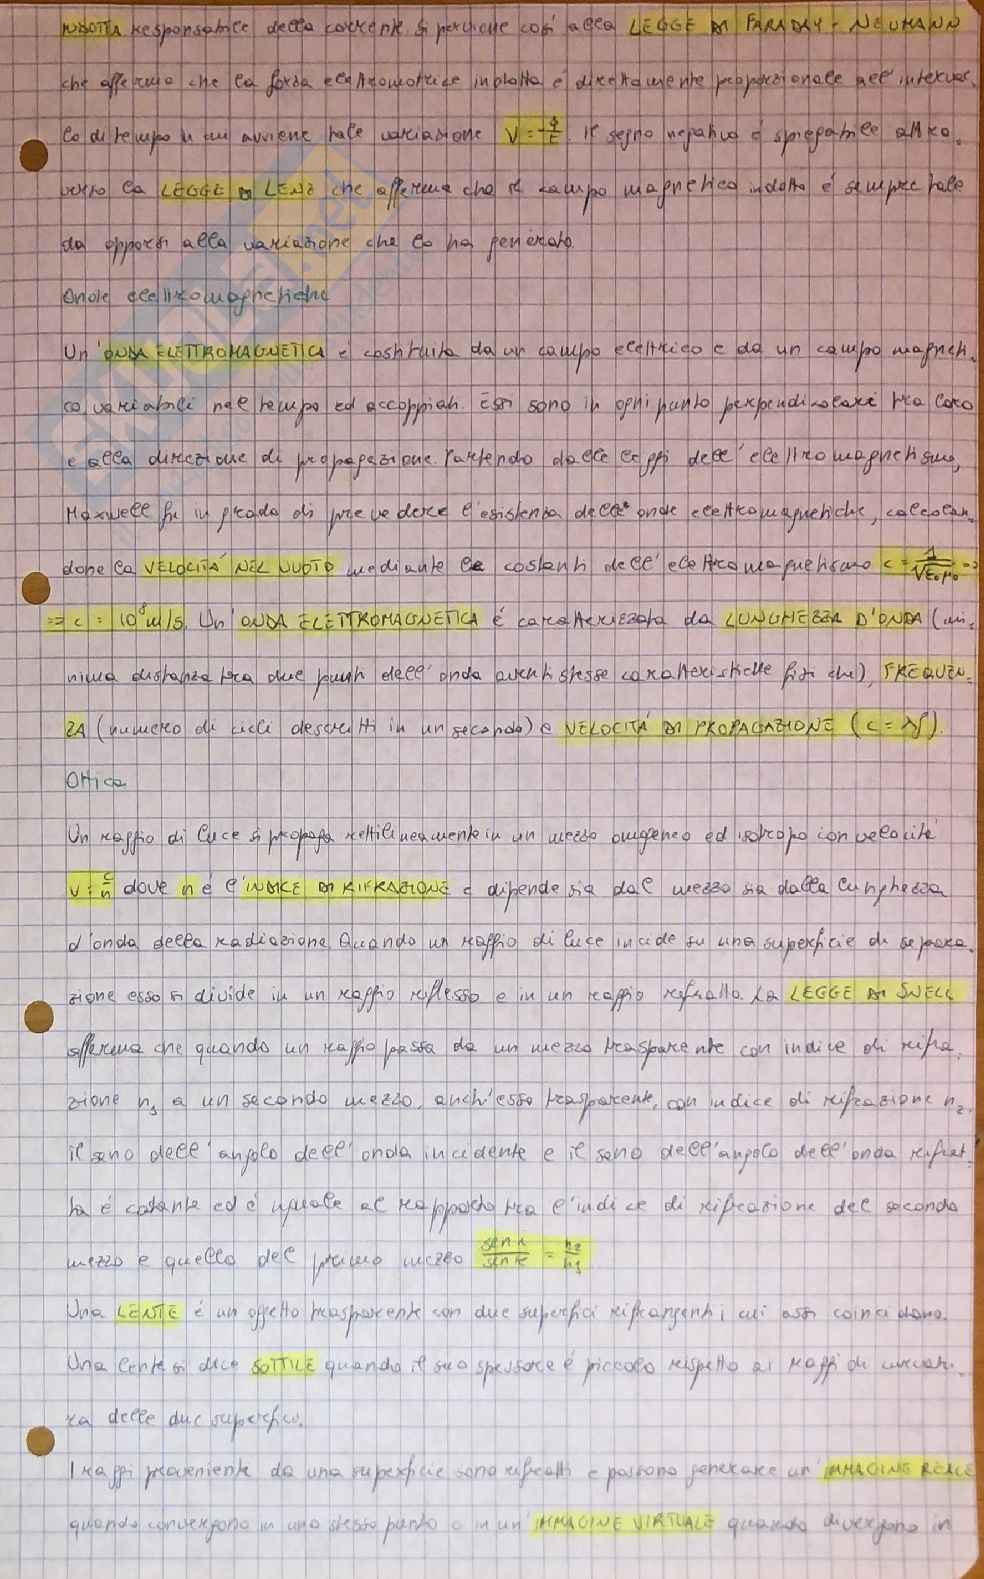 INDOTTA responsabile della corrente. Si perviene così alla LEGGE DI FARADAY-NEUMANN
che afferma che la forza elettromotrice indotta é direttamente proporzionale all'interval.
lo di tempo in cui avviene tale variazione V = -φ/t. Il segno negativo é spiegabile attra.
verso la LEGGE DI LENZ che afferma che il campo magnetico indotto é sempre tale
da opporsi alla variazione che lo ha generato.
Onde elettromagnetiche
Un'ONDA ELETTROMAGNETICA é costituita da un campo elettrico e da un campo magneti.
co variabili nel tempo ed accoppiati. Essi sono in ogni punto perpendicolari tra loro
e alla direzione di propagazione. Partendo dalle leggi dell'elettromagnetismo,
Maxwell fu in grado di prevedere l'esistenza delle onde elettromagnetiche, calcolan.
done la VELOCITÁ NEL VUOTO mediante le costanti dell'elettromagnetismo c = 1/√ε₀μ₀ =>
=> c = 10⁸ m/s. Un'ONDA ELETTROMAGNETICA é caratterizzata da LUNGHEZZA D'ONDA (mi.
nima distanza tra due punti dell'onda aventi stesse caratteristiche fisiche), FREQUEN.
ZA (numero di cicli descritti in un secondo) e VELOCITÁ DI PROPAGAZIONE (c = λf).
Ottica
Un raggio di luce si propaga rettilineamente in un mezzo omogeneo ed isotropo con velocità
v = c/n dove n é l'INDICE DI RIFRAZIONE e dipende sia dal mezzo sia dalla lunghezza
d'onda della radiazione. Quando un raggio di luce incide su una superficie di separa.
zione esso si divide in un raggio riflesso e in un raggio rifratto. La LEGGE DI SNELL
afferma che quando un raggio passa da un mezzo trasparente con indice di rifra.
zione n₁ a un secondo mezzo, anch'esso trasparente, con indice di rifrazione n₂,
il seno dell'angolo dell'onda incidente e il seno dell'angolo dell'onda rifrat.
ta é costante ed é uguale al rapporto tra l'indice di rifrazione del secondo
mezzo e quello del primo mezzo sen i/sen r = n₂/n₁
Una LENTE é un oggetto trasparente con due superfici rifrangenti i cui assi coincidono.
Una lente si dice SOTTILE quando il suo spessore é piccolo rispetto ai raggi di curvatu.
ra delle due superfici.
I raggi proveniente da una superficie sono rifratti e possono generare un'IMMAGINE REALE
quando convergono in uno stesso punto o in un'IMMAGINE VIRTUALE quando divergono in
SKUOLA.net